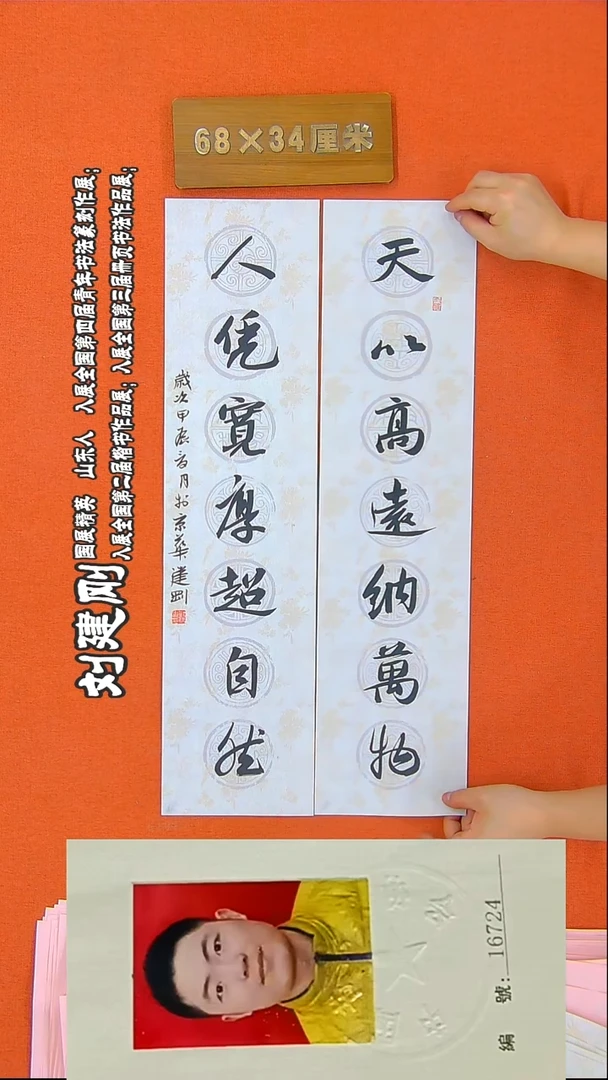 68×34厘米
天以高遠纳萬物
人凭寛厚超自然
歳次甲辰
月於京華建剛
刘建刚
国展精英 山东人 入展全国第四届青年书法篆刻作展；
入展全国第二届楷书作品展；入展全国第三届册页书法作品展；
編 號：16724